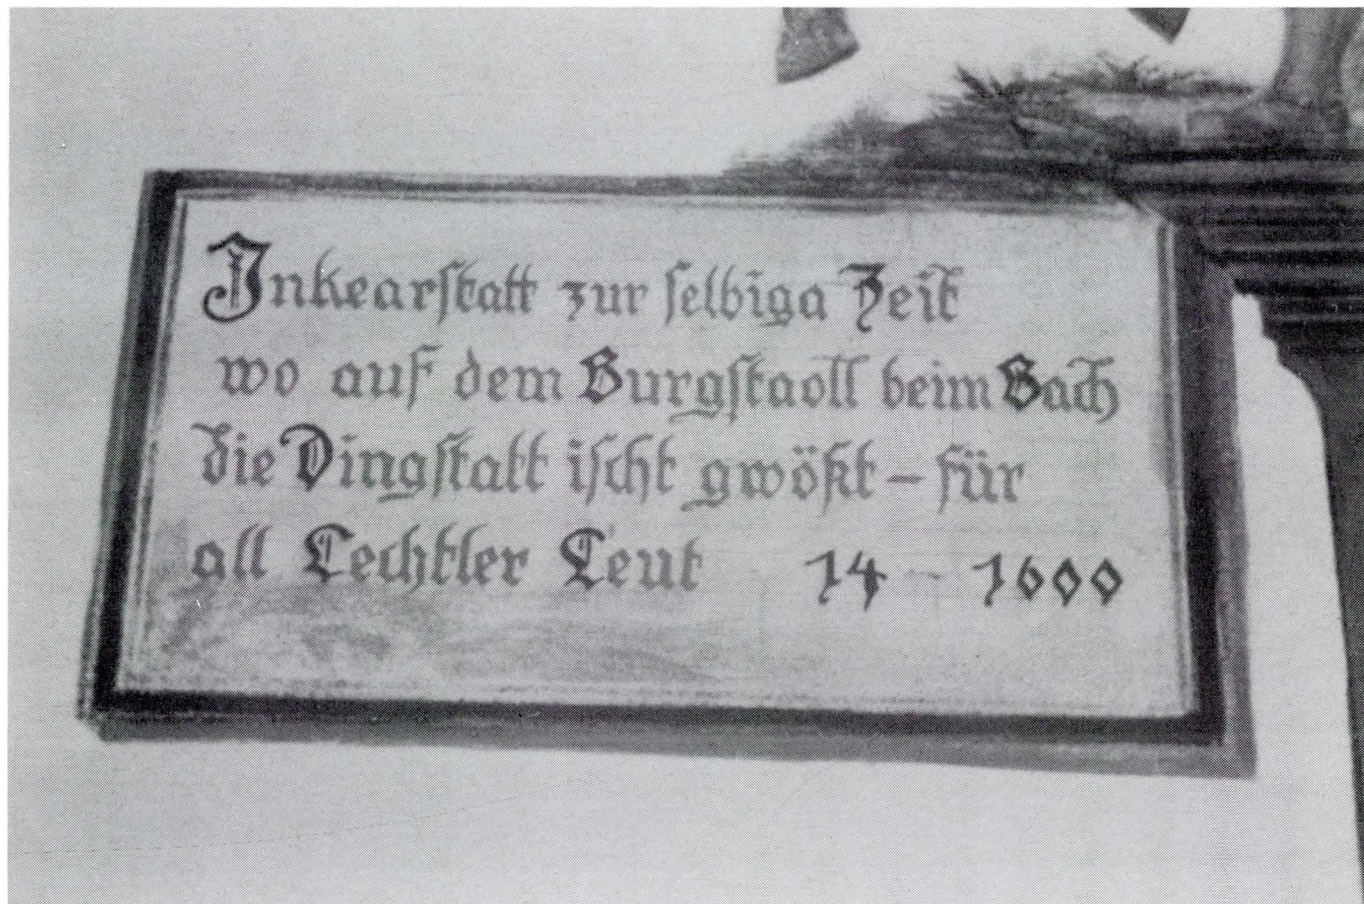 Inkearstatt zur selbiga Zeit
wo auf dem Burgstaoll beim Bach
die Dingstatt ischt gwößt – für
all Lechtler Leut 14 – 1600